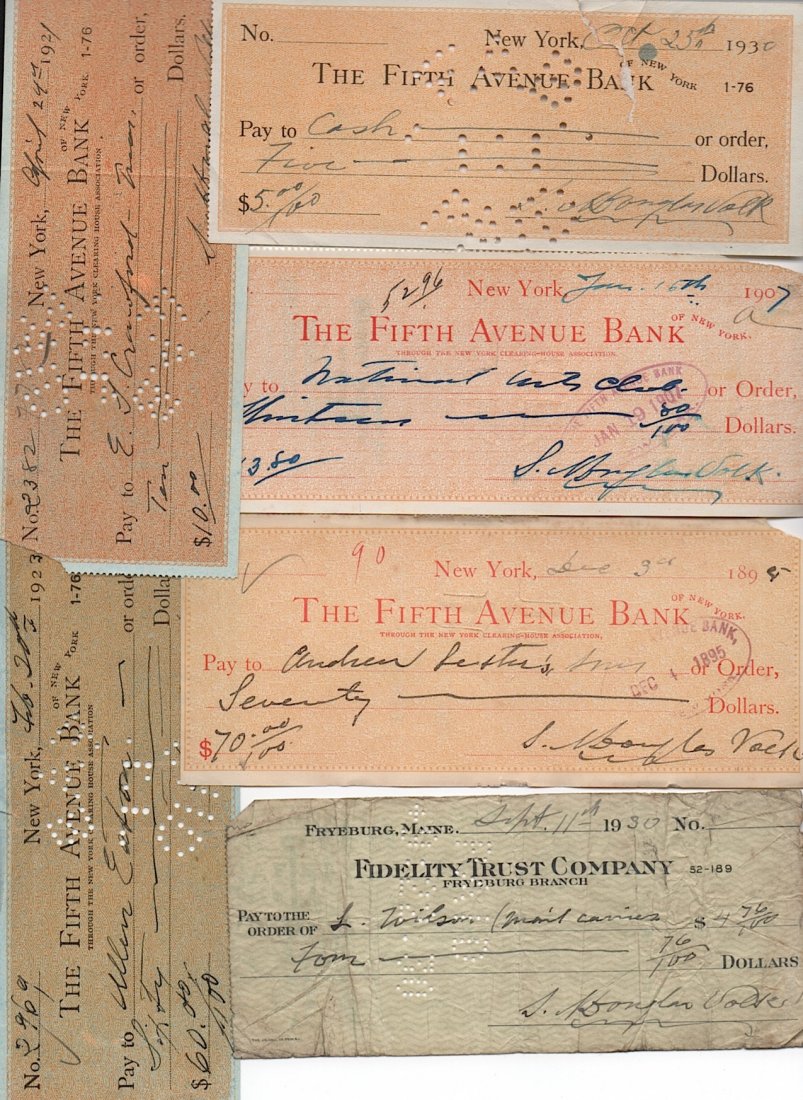 No. New York, Oct 25th 1930
THE FIFTH AVENUE BANK OF NEW YORK 1-76
Pay to Cash or order,
Five Dollars.
$5.00/100 S. Douglas Volk
5296 New York, Jan. 16th 1907
a
THE FIFTH AVENUE BANK OF NEW YORK.
THROUGH THE NEW YORK CLEARING-HOUSE ASSOCIATION.
y to National Arts Club or Order,
80/100 Dollars.
JAN 19 1907
3.80 S. Douglas Volk.
90 New York, Dec 3rd 1895
THE FIFTH AVENUE BANK OF NEW YORK.
THROUGH THE NEW YORK CLEARING-HOUSE ASSOCIATION,
Pay to Andrew Lester's Sons or Order,
Seventy Dollars.
AVENUE BANK, DEC 1895
$70.00/100 S. Douglas Volk
FRYEBURG, MAINE. Sept. 11th 1930 No.
FIDELITY TRUST COMPANY 52-189
FRYEBURG BRANCH
PAY TO THE ORDER OF L. Wilson (mail carrier $4 76/100
Four 76/100 DOLLARS
S. Douglas Volk
No. 2382 New York, April 24th 1921
THE FIFTH AVENUE BANK OF NEW YORK 1-76
THROUGH THE NEW YORK CLEARING HOUSE ASSOCIATION
Pay to E. J. Crawford or order,
Ten Dollars.
$10.00
No. 2969 New York, Feb. 1923
THE FIFTH AVENUE BANK OF NEW YORK 1-76
THROUGH THE NEW YORK CLEARING HOUSE ASSOCIATION
Pay to Allen Eaton or orde
Sixty Dolla
$60.00/100